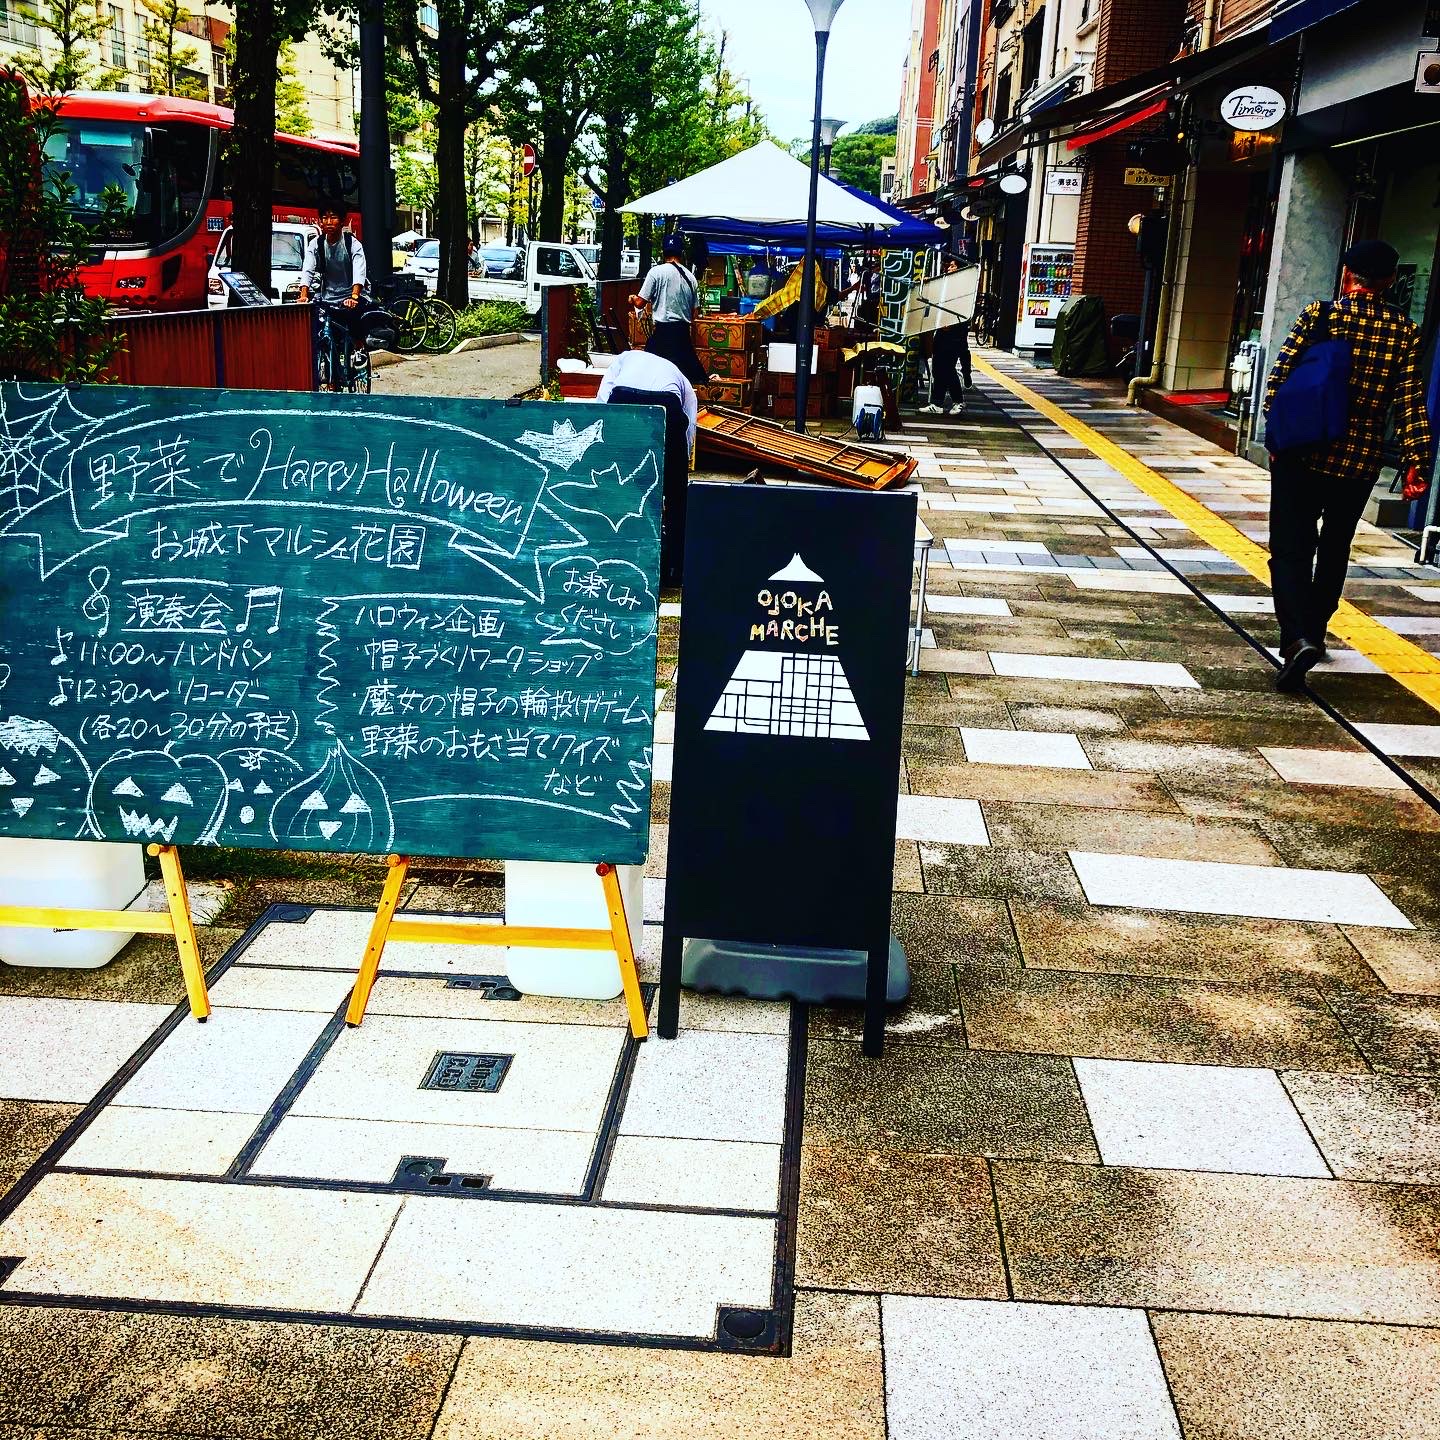 野菜でHappyHalloween
お城下マルシェ花園
演奏会
♪11:00〜ハンドパン
♪12:30〜リコーダー
(各20〜30分の予定)
お楽しみ
ください
ハロウィン企画
・帽子づくりワークショップ
・魔女の帽子の輪投げゲーム
・野菜のおもさ当てクイズ
など
OJOKA
MARCHE
Timone